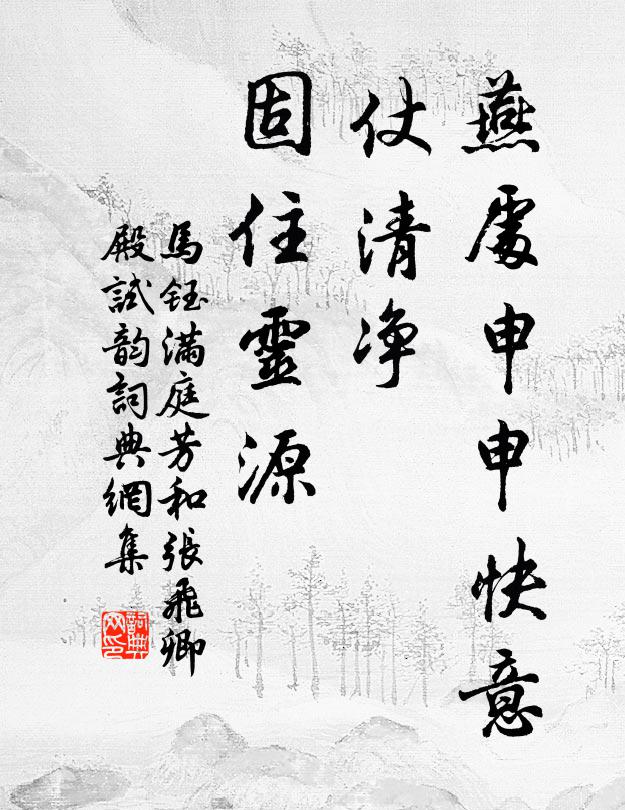 燕處申申快意
仗清净
固住靈源
馬鈺滿庭芳和張飛卿
殿試韵詞典網集
詞典
网印